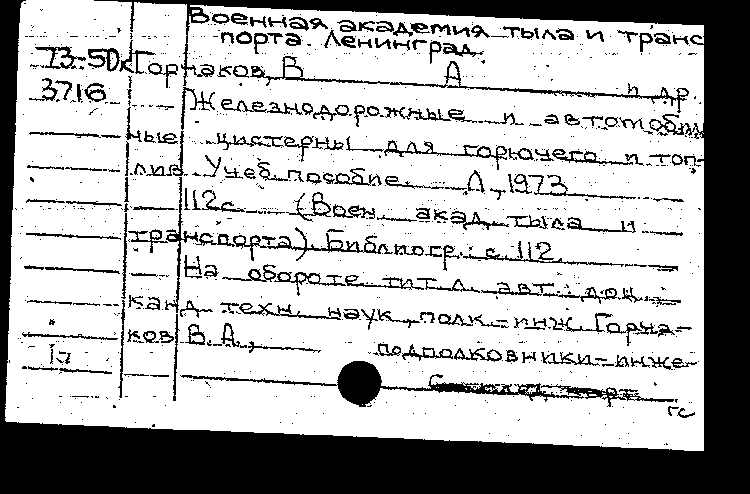 Военная академия тыла и транс
порта. Ленинград.
73-50к Горчаков, В А и др.
3716 Железнодорожные и автомобиль
ные цистерны для горючего и топ-
лив. Учеб. пособие. Л., 1973
112 с. (Воен. акад. тыла и
транспорта). Библиогр.: с. 112.
На обороте тит. л. авт.: доц.
канд. техн. наук, полк.-инж. Горча-
ков В. А.,
1л подполковники-инже-
гс